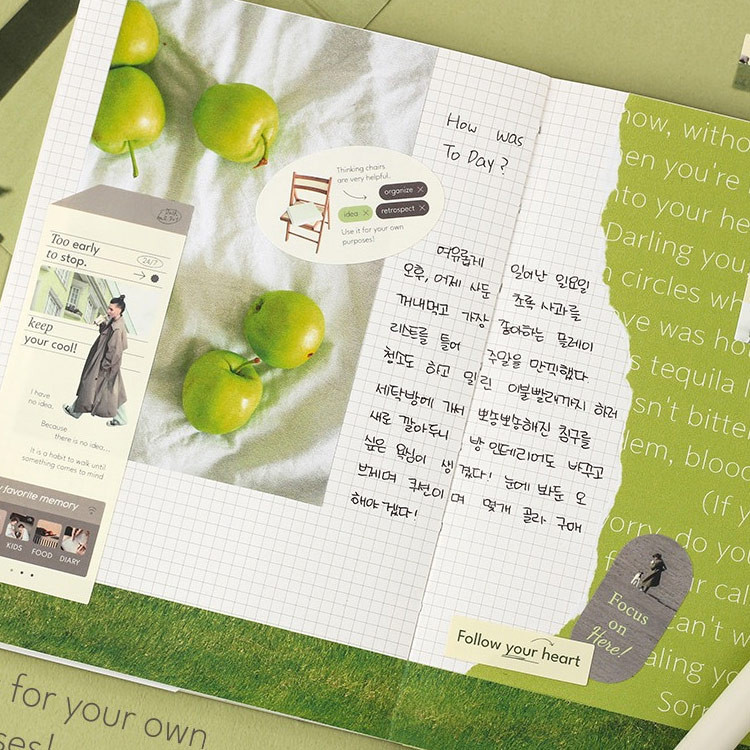 How was
To Day?
Thinking chairs
are very helpful.
organize ×
idea ×
retrospect ×
Use it for your own
purposes!
Too early
to stop.
24/7
keep
your cool!
I have
no idea.
Because
there is no idea...
It is a habit to walk until
something comes to mind
favorite memory
KIDS FOOD DIARY
여유롭게 일어난 일요일
오후, 어제 사둔 초록 사과를
꺼내먹고 가장 좋아하는 플레이
리스트를 틀어 주말을 만끽했다
청소도 하고 밀린 이불빨래까지 하러
세탁방에 가서 뽀송뽀송해진 침구를
새로 깔아두니 방 인테리어도 바꾸고
싶은 욕심이 생겼다! 눈에 봐둔 오
브제며 쿠션이며 몇개 골라 구매
해야겠다!
now, witho
en you're
nto your he
Darling you
n circles wh
ve was ho
s tequila
sn't bitte
lem, blood
(If y
orry, do you
r cal
an't w
aling y
Sorr
Focus
on
Here!
Follow your heart
for your own
ses!